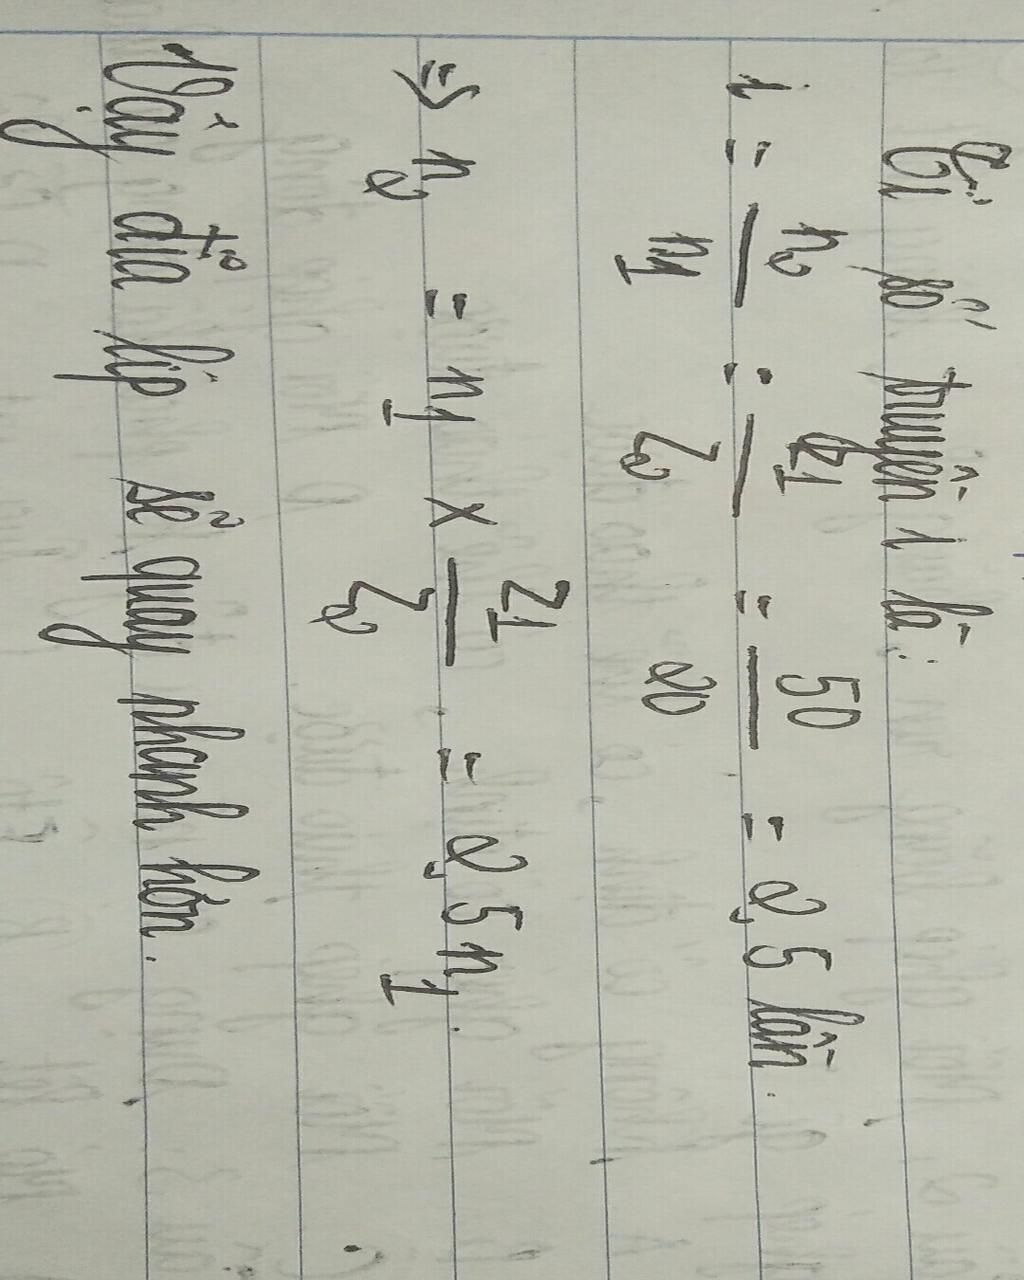 Tỉ số truyền i là:
i = n2/n1 = Z1/Z2 = 50/20 = 2,5 lần.
=> n2 = n1 x Z1/Z2 = 2,5 n1.
Vậy đĩa líp sẽ quay nhanh hơn.